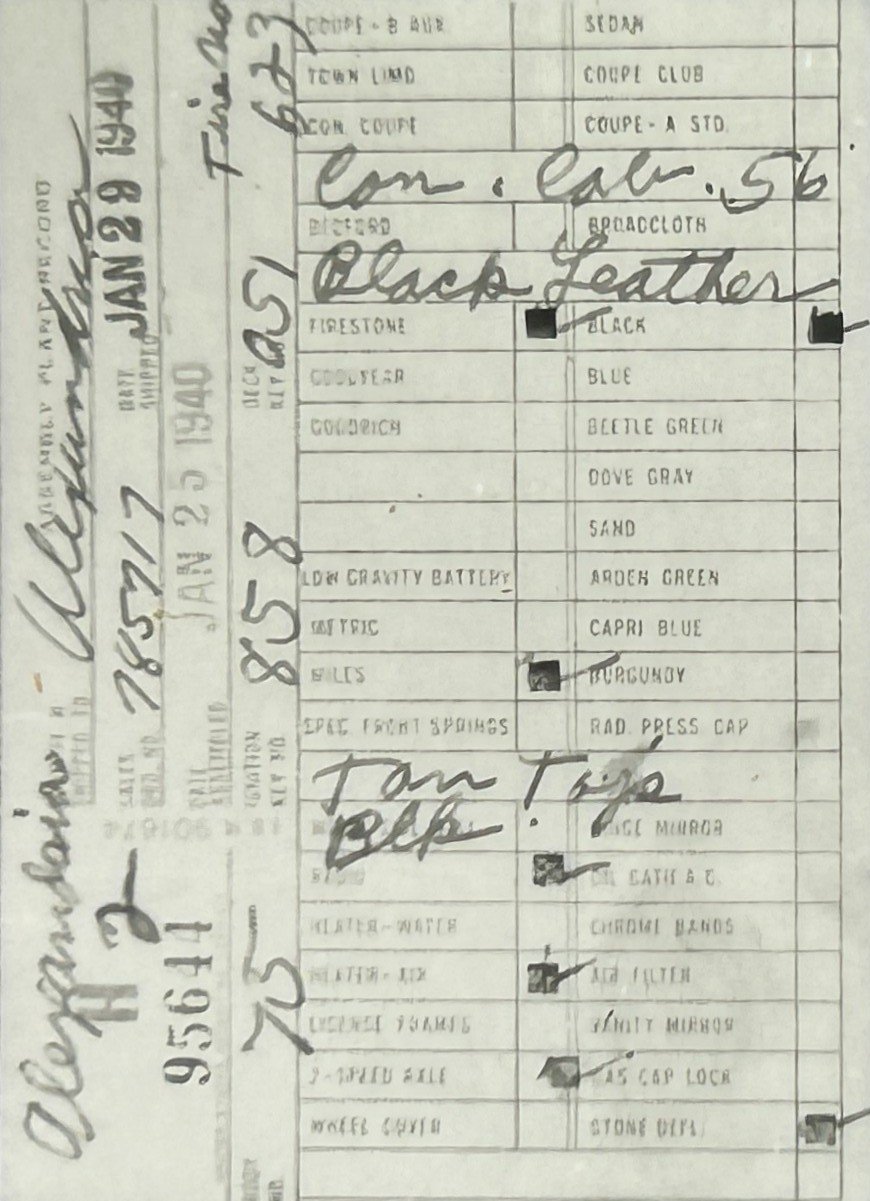 COUPE - B AUX SEDAN
TOWN LIMO COUPE CLUB
CON. COUPE COUPE - A STD.
Con. Cab. 56
BEDFORD BROADCLOTH
Black Leather
FIRESTONE BLACK
GOODYEAR BLUE
GOODRICH BEETLE GREEN
DOVE GRAY
SAND
LOW GRAVITY BATTERY ARDEN GREEN
METRIC CAPRI BLUE
MILES BURGUNDY
SPEC FRONT SPRINGS RAD. PRESS CAP
Tan Top
Blk. MIRROR
RADIO OIL BATH A C
HEATER-WATER CHROME BANDS
HEATER-AIR AIR FILTER
LICENSE FRAMES VANITY MIRROR
2-SPEED AXLE GAS CAP LOCK
WHEEL COVER STONE DEFL
ASSEMBLY PLANT RECORD
Alexandria
SHIPPED TO Alexandria
H 2
DATE SHIPPED JAN 29 1940
SALES ORD. NO. 785717
JAN 25 1940
95644
Tire No
623
IGNITION KEY NO 858
DECK KEY 251
75